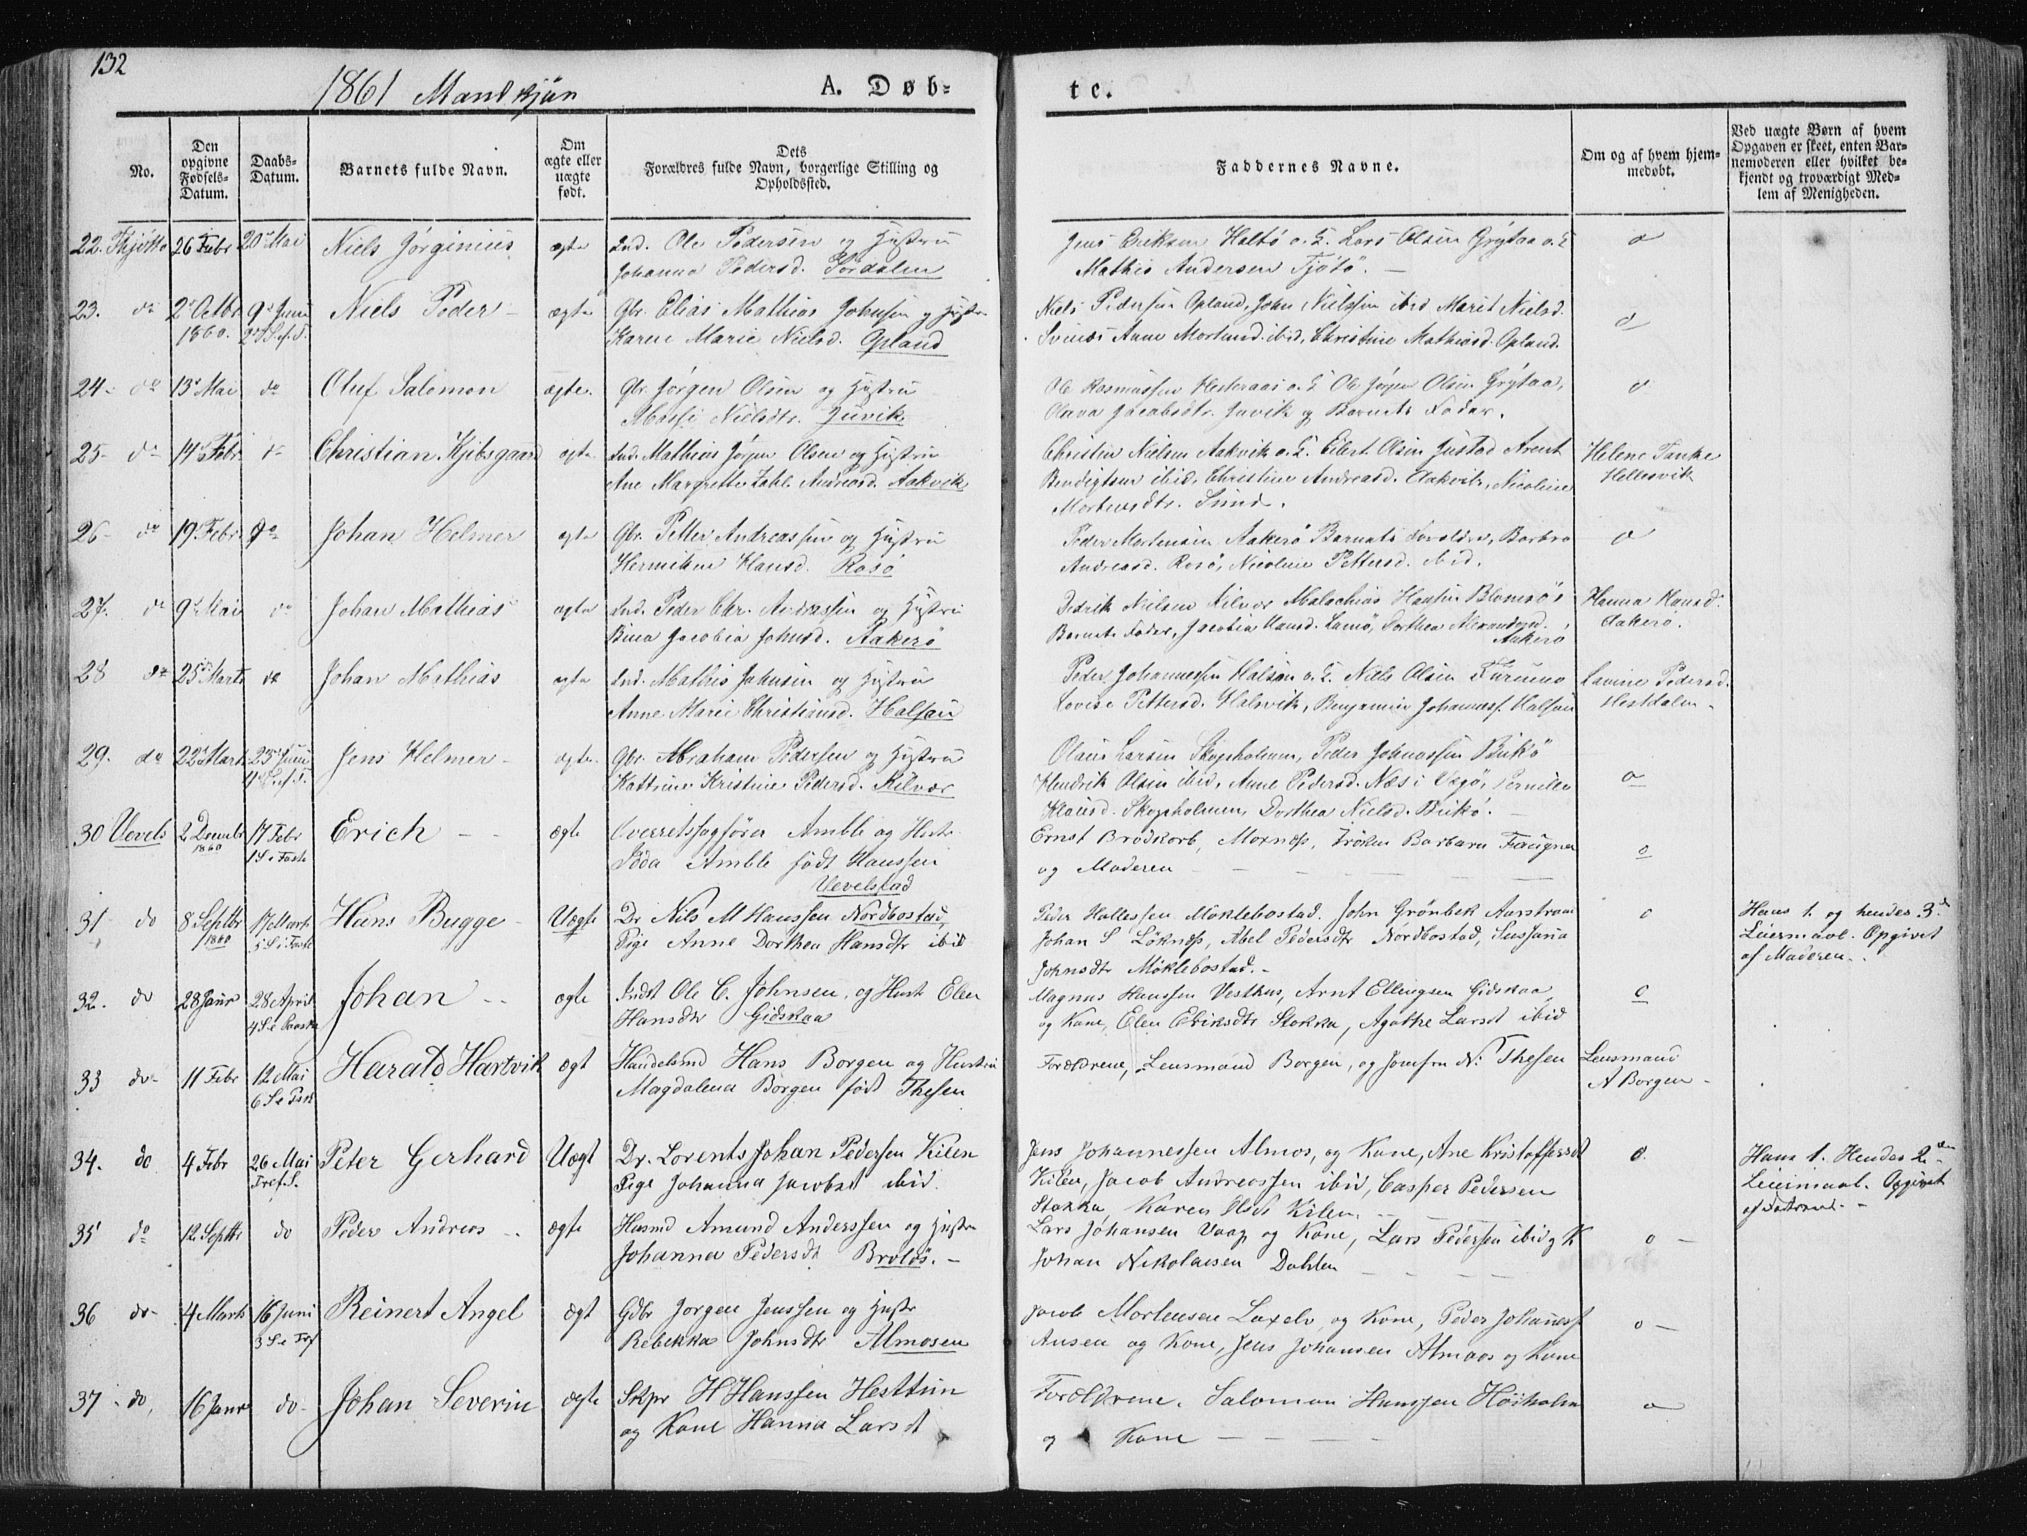 132
1861 Mandkjøn
A. Døb-
te.
No.
Den opgivne Fødsels-Datum.
Daabs-Datum.
Barnets fulde Navn.
Om ægte eller uægte født.
Dets Forældres fulde Navn, borgerlige Stilling og Opholdssted.
Faddernes Navne.
Om og af hvem hjem-medøbt.
Ved uægte Børn af hvem Opgaven er skeet, enten Bar-nemoderen eller hvilket be-kjendt og troværdigt Med-lem af Menigheden.
22. Thjøttø 26 Febr 20 Mai Niels Jørginius ægte Ind. Ole Pedersen og Hustru
Johanna Pedersd. Sørdalen
Jens Eriksen Haltø o.H. Lars Olsen Grytaa o.H
Mathis Andersen Tjøtø. — o
23. do 2 Octbr 1860. 9 Juni 2 S.e.f.T. Niels Peder ægte Gbr. Elias Mathias Johnsen og Hustru
Karen Marie Nielsd. Opland
Niels Pedersen Opland, John Nielsen ibid Marit Nielsd.
Svines Anne Mortensd. ibid, Christine Mathiasd. Opland. o
24. do 13 Mai do Oluf Salomon ægte. Gbr. Jørgen Olsen og Hustru
Massi Nielsdtr. Juvik
Ole Rasmussen Hesteraas o.H Ole Jørgen Olsen Grytaa,
Olava Jacobsdtr. Juvik og Barnets Fader. o
25 do 14 Febr do Christian Kjibsgaard ægte Ind. Mathias Jørgen Olsen og Hustru
Ane Margrethe Zahl Andreasd. Aakvik
Christen Nielsen Aakvik o.H. Eilert Olsen Justad Arent
Bendigtsen ibid, Christine Andreasd. Aakvik, Nicoline
Mortensdtr. Sund.
Helene Tanke
Hellesvik
26 do 19 Febr do Johan Helmer ægte Gbr. Petter Andreassen og Hustru
Hermikine Hansd. Rosø
Peder Mortensen Aakerø Barnets Forældre, Barbro
Andreasd. Rosø, Nicoline Pettersd. ibid. o
27. do 9 Mai do Johan Mathias ægte Ind. Peder Chr. Andreassen og Hustru
Bina Jacobia Johnsd. Aakerø
Didrik Nielsen Kilvær Malachias Hansen Blomsø
Barnets Fader, Jacobia Hansd. Lamø, Dorthea Alexandersd.
Aakerø
Hanna Hansd.
Aakerø.
28 do 25 Marts do Johan Mathias ægte Ind. Mathis Johnsen og Hustru
Anne Marie Christiansd. Halsan
Peder Johannessen Halsan o.H. Niels Olsen Furumo
Lovise Pettersd. Halsvik, Benjamin Johanness. Halsan
Lavine Pedersd.
Hestdalen.
29. do 22 Marts 23 Juni 4 S.e.f.T. Jens Helmer ægte. Gbr. Abraham Pedersen og Hustru
Kattrine Kristine Pedersd. Kilvær
Olaus Larsen Skogsholmen, Peder Johnsen Bukø
Hendrik Olsen ibid, Anne Pedersd. Næs i Vegø, Pernille
Klausd. Skogsholmen, Dorthea Nielsd. Bukø. — o
30 Vevels 2 Decembr 1860 17 Febr 1 S. i Faste Erich ægte Overretssagfører Amble og Hustr
Amble født Hanssen
Vevelstad
Ernst Brodkorb, Mornæs, Frøken Barbara Faugner
og Moderen o
31 do 8 Septbr 1860 17 Marts 5 S. i Faste Hans Bugge Uægte Dr. Nils M Hanssen Nordbostad,
Pige Anne Dorthea Hansdtr ibid
Peder Hallessen Møklebostad. John Grønbek Aarstraae
Johan S Løknæs, Abel Pedersdtr Nordbostad, Sussana
Johnsdtr Møklebostad. o
Hans 1. og hendes 3.
Leiermaal. Opgivet
af Moderen.
32. do 28 Janr 28 April 4 S.e Paaske Johan ægte Indst Ole C. Johnsen, og Hust Elen
Hansdtr Gidskaa
Magnus Hanssen Vesthus, Arnt Ellingsen Gidskaa,
og Kone, Elen Eriksdtr Stokka, Agathe Larsd ibid o
33 do 11 Febr 12 Mai 6 S.e Psk Harald Hartvik ægt Handelsmd Hans Borgen og Hustru
Magdalena Borgen født Thesen
Forældrene, Lensmand Borgen, og Jomfru N. Thesen
Lensmand
A Borgen
34. do 4 Febr 26 Mai Tref.S. Peter Gerhard Uægt Dr. Lorents Johan Pedersen Kilen
Pige Johanna Jacobsd ibid.
Jens Johannessen Almos, og Kone, Ane Kristoffersd
Kilen, Jacob Andreassen ibid, Casper Pedersen
Stokka, Karen Olsd Kilen. o.
Hans 1. Hendes 2den
Leiermaal. Opgivet
35 do 12 Septbr do Peder Andreas ægte Husmd Amund Anderssen og Hustr
Johanna Pedersdt Broløs.
Lars Johansen Vaag og Kone, Lars Pedersen ibid og K
Johan Nikolaisen Dahlen o
36 do 4 Marts 16 Juni 3 S.e Tref Reinert Angel ægt Gdbr Jørgen Jenssen og Hustr
Rebekka Johnsdtr Almosen
Jacob Mortensen Laxelv og Kone, Peder Johaness
Ausen og Kone, Jens Johansen Almaos og Kone o
37 do. 16 Janr do Johan Severin ægte Skpr H Hanssen Hesttun
og Kone Hanna Larsd
Forældrene. Salomon Hanssen Høiholm
og Kone o